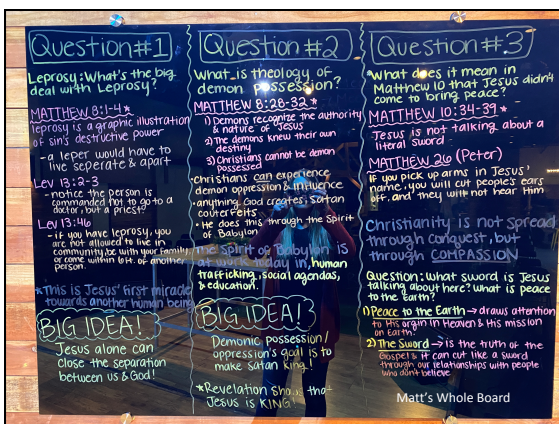 Question #1
Leprosy: What's the big
deal with Leprosy?
MATTHEW 8:1-4*
leprosy is a graphic illustration
of sin's destructive power
- a leper would have to
live seperate & apart
Lev 13:2-3
- notice the person is
commanded not to go to a
doctor, but a priest?
Lev 13:46
- if you have leprosy, you
are not allowed to live in
community, be with your family,
or come within 6ft. of another
person.
*This is Jesus' first miracle
towards another human being
BIG IDEA!
Jesus alone can
close the separation
between us & God!
Question #2
What is theology of
demon possession?
MATTHEW 8:28-32*
1) Demons recognize the authority
& nature of Jesus
2) The demons knew their own
destiny
3) Christians cannot be demon
possessed
- Christians can experience
demon oppression & influence
- anything God creates, Satan
counterfeits
- He does this through the Spirit
of Babylon
The Spirit of Babylon is
at work today in, human
trafficking, social agendas,
& education!
BIG IDEA!
Demonic possession/
oppression's goal is to
make satan king!
*Revelation shows that
Jesus is KING!
Question #3
What does it mean in
Matthew 10 that Jesus didn't
come to bring peace?
MATTHEW 10:34-39*
Jesus is not talking about a
literal sword
MATTHEW 26 (Peter)
If you pick up arms in Jesus'
name, you will cut people's ears
off, and they will not hear Him
Christianity is not spread
through conquest, but
through COMPASSION
Question: what sword is Jesus
talking about here? what is peace
to the earth?
1) Peace to the Earth → draws attention
to His orgin in Heaven & His mission
on Earth!
2) The Sword → is the truth of the
Gospel & it can cut like a sword
through our relationships with people
who don't believe
Matt's Whole Board